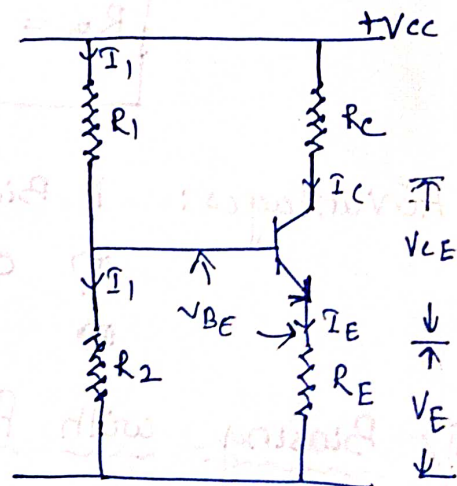 +VCC
I1
R1
RC
IC
VCE
I1
VBE
IE
R2
RE
VE